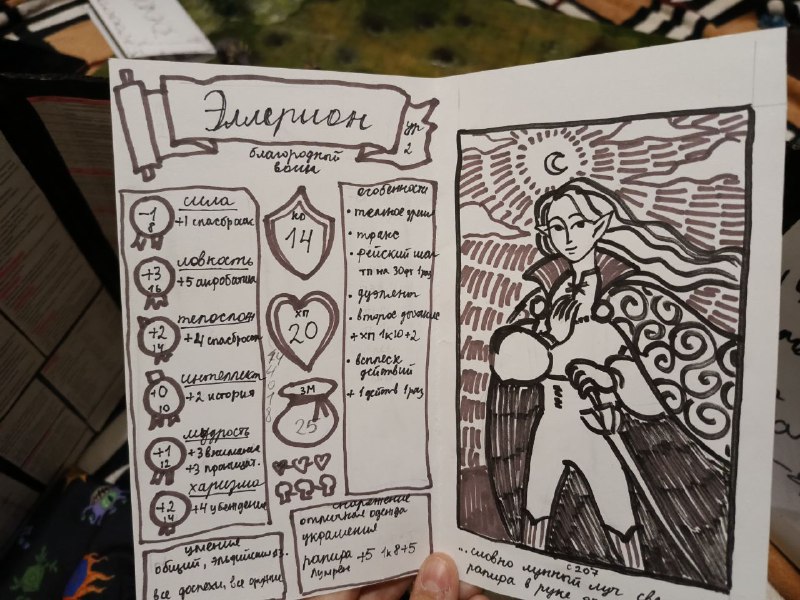 Эллерион
ур
2
благородный
воин
-1
8
сила
+1 спасбросок
+3
16
ловкость
+5 акробатика
+2
14
телослож
+4 спасбросок
+0
10
интеллект
+2 история
+1
12
мудрость
+3 внимание
+3 проницат.
+2
14
харизма
+4 убеждение
умения
общий, эльфийский яз.
все доспехи, все оружие
КД
14
ХП
20
14
4
0
1
8
ЗМ
25
особенности
• темное зрен
• транс
• фейский шаг
тп на 30фт 1 раз
• дуэлянт
• второе дыхание
+ хп 1к10+2
• всплеск
действий
+ 1 действ 1 раз
снаряжение
отличная одежда
украшения
рапира +5 1к8+5
Лумрен
с 207
...словно лунный луч
рапира в руке